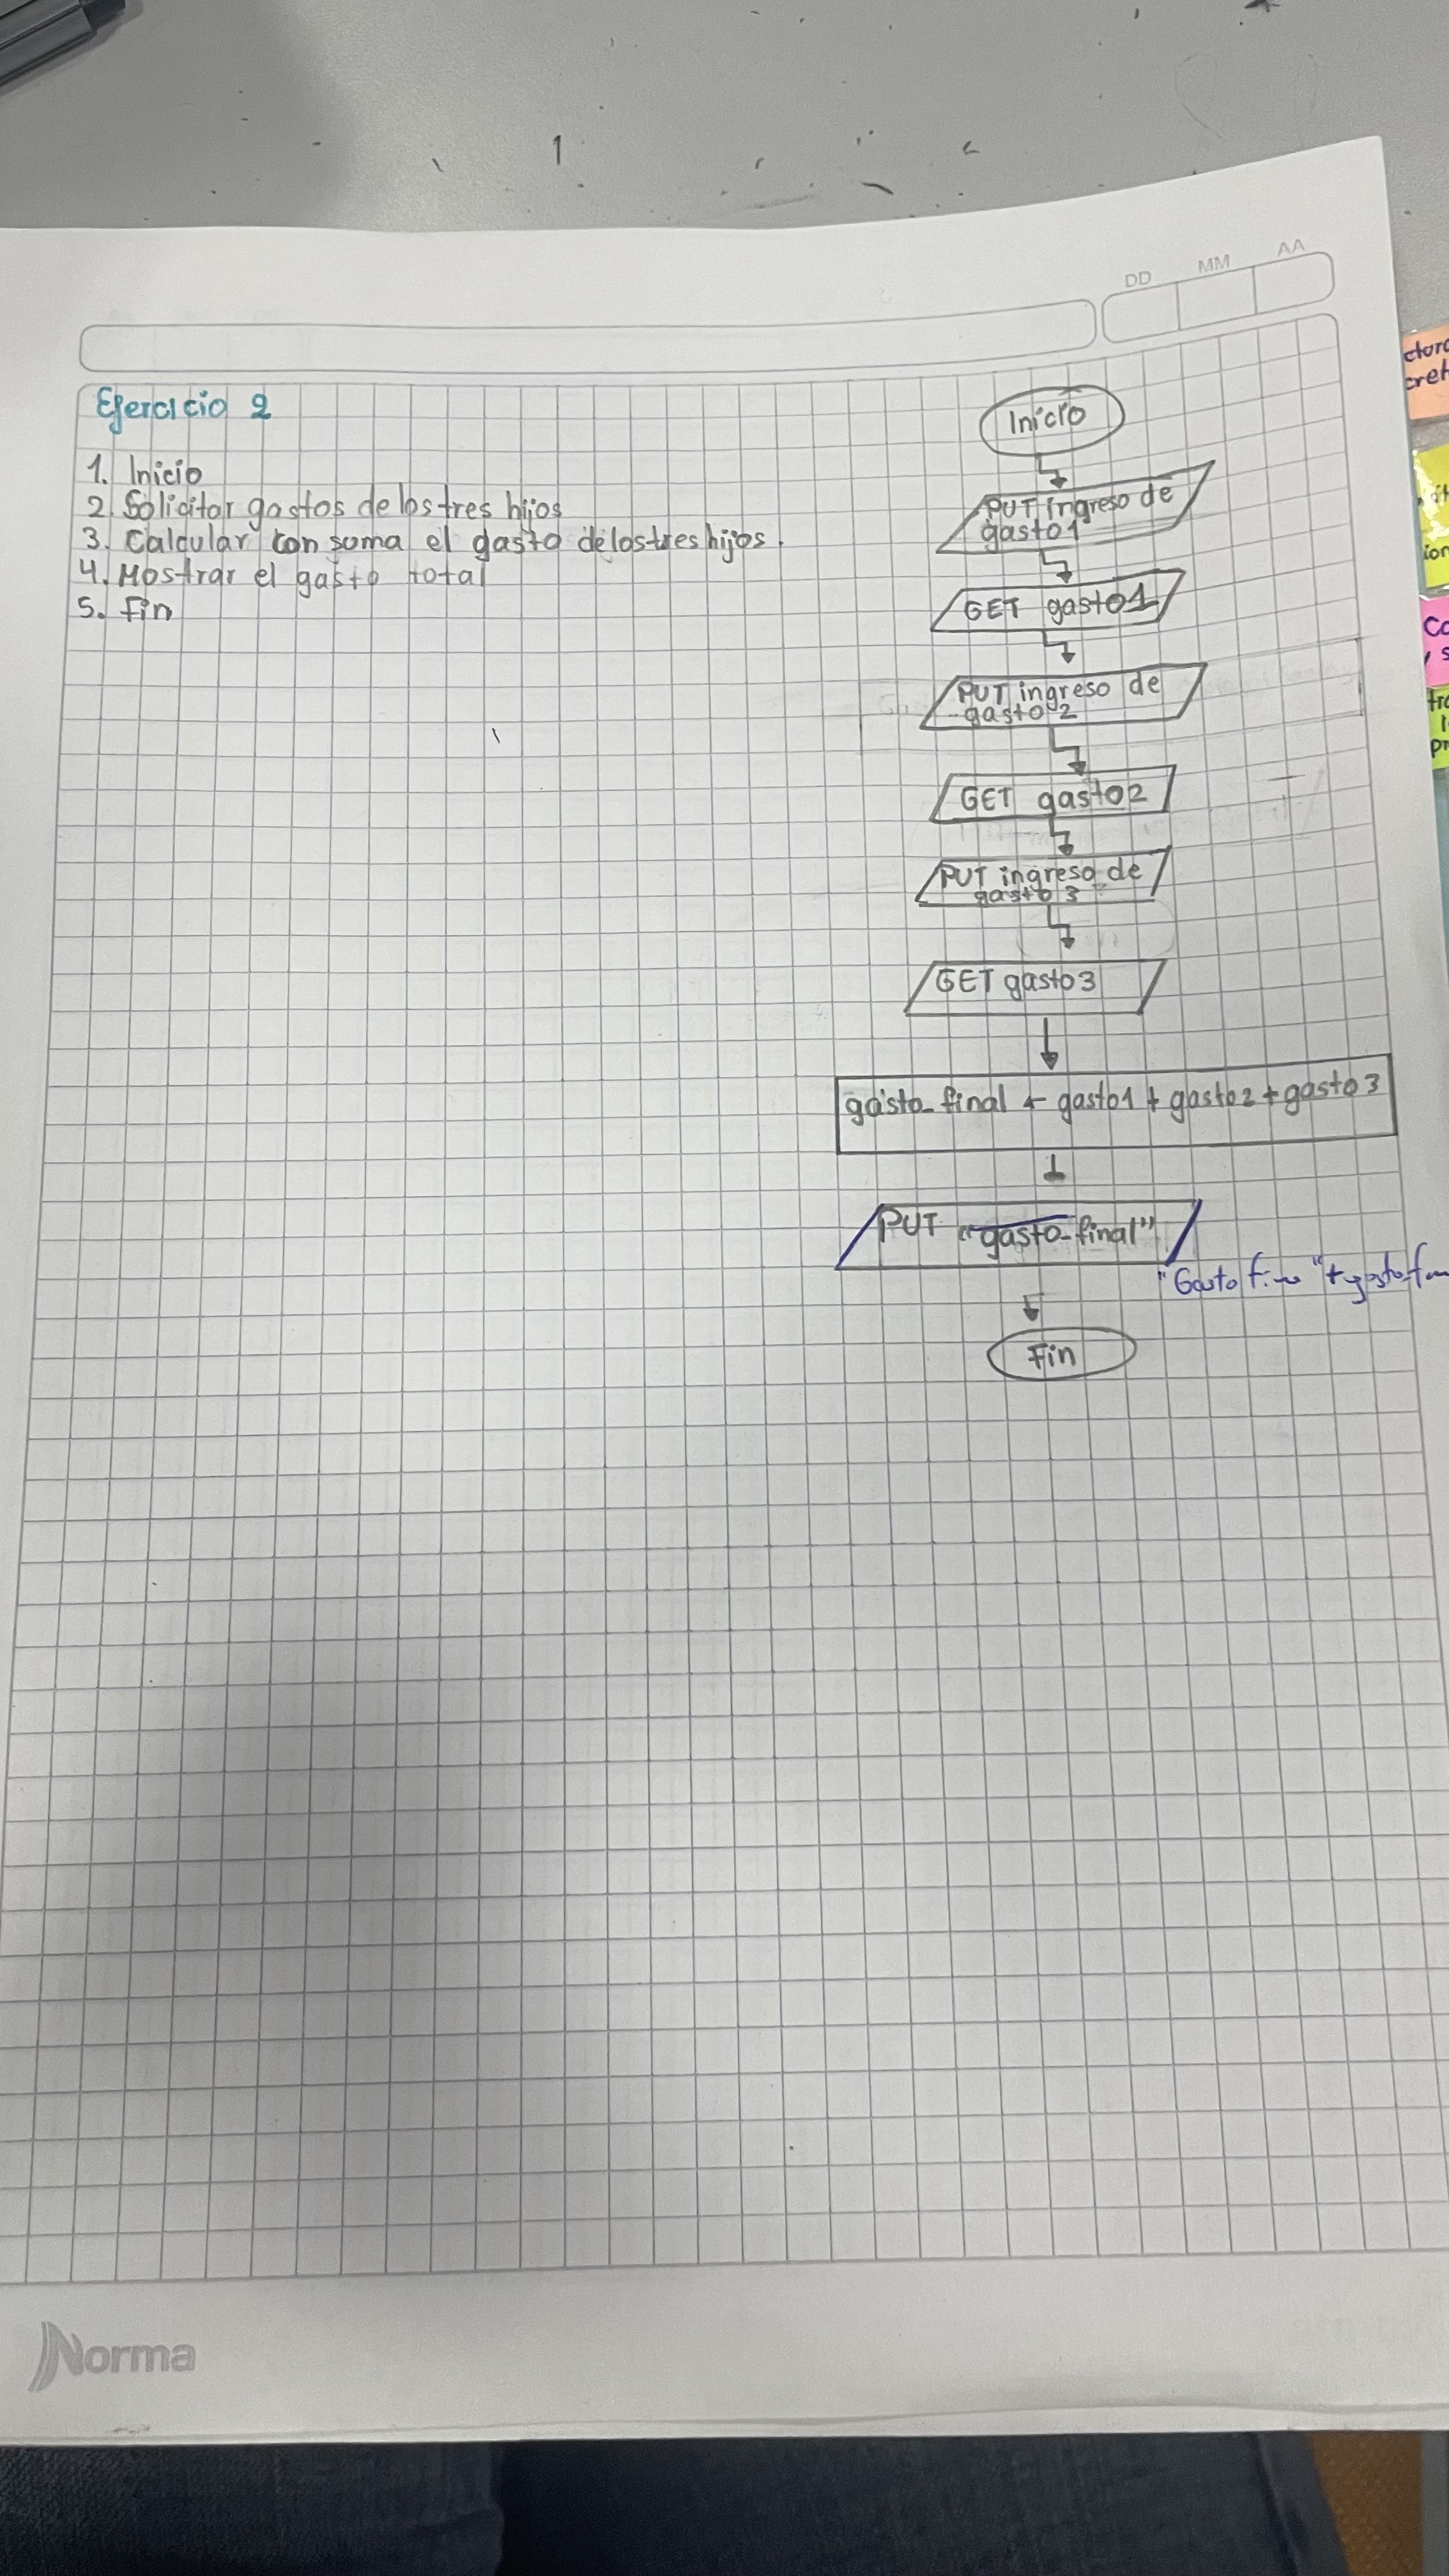 DD MM AA
Ejercicio 2
1. Inicio
2. Solicitar gastos de los tres hijos
3. Calcular con suma el gasto de los tres hijos.
4. Mostrar el gasto total
5. Fin
Inicio
PUT ingreso de
gasto1
GET gasto1
PUT ingreso de
gasto 2
GET gasto2
PUT ingreso de
gasto 3
GET gasto3
gasto_final ← gasto1 + gasto2 + gasto3
PUT "gasto_final"
"Gasto
Fin
Norma